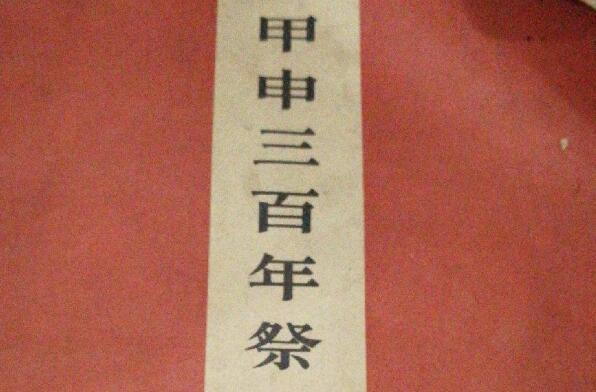 甲申三百年祭